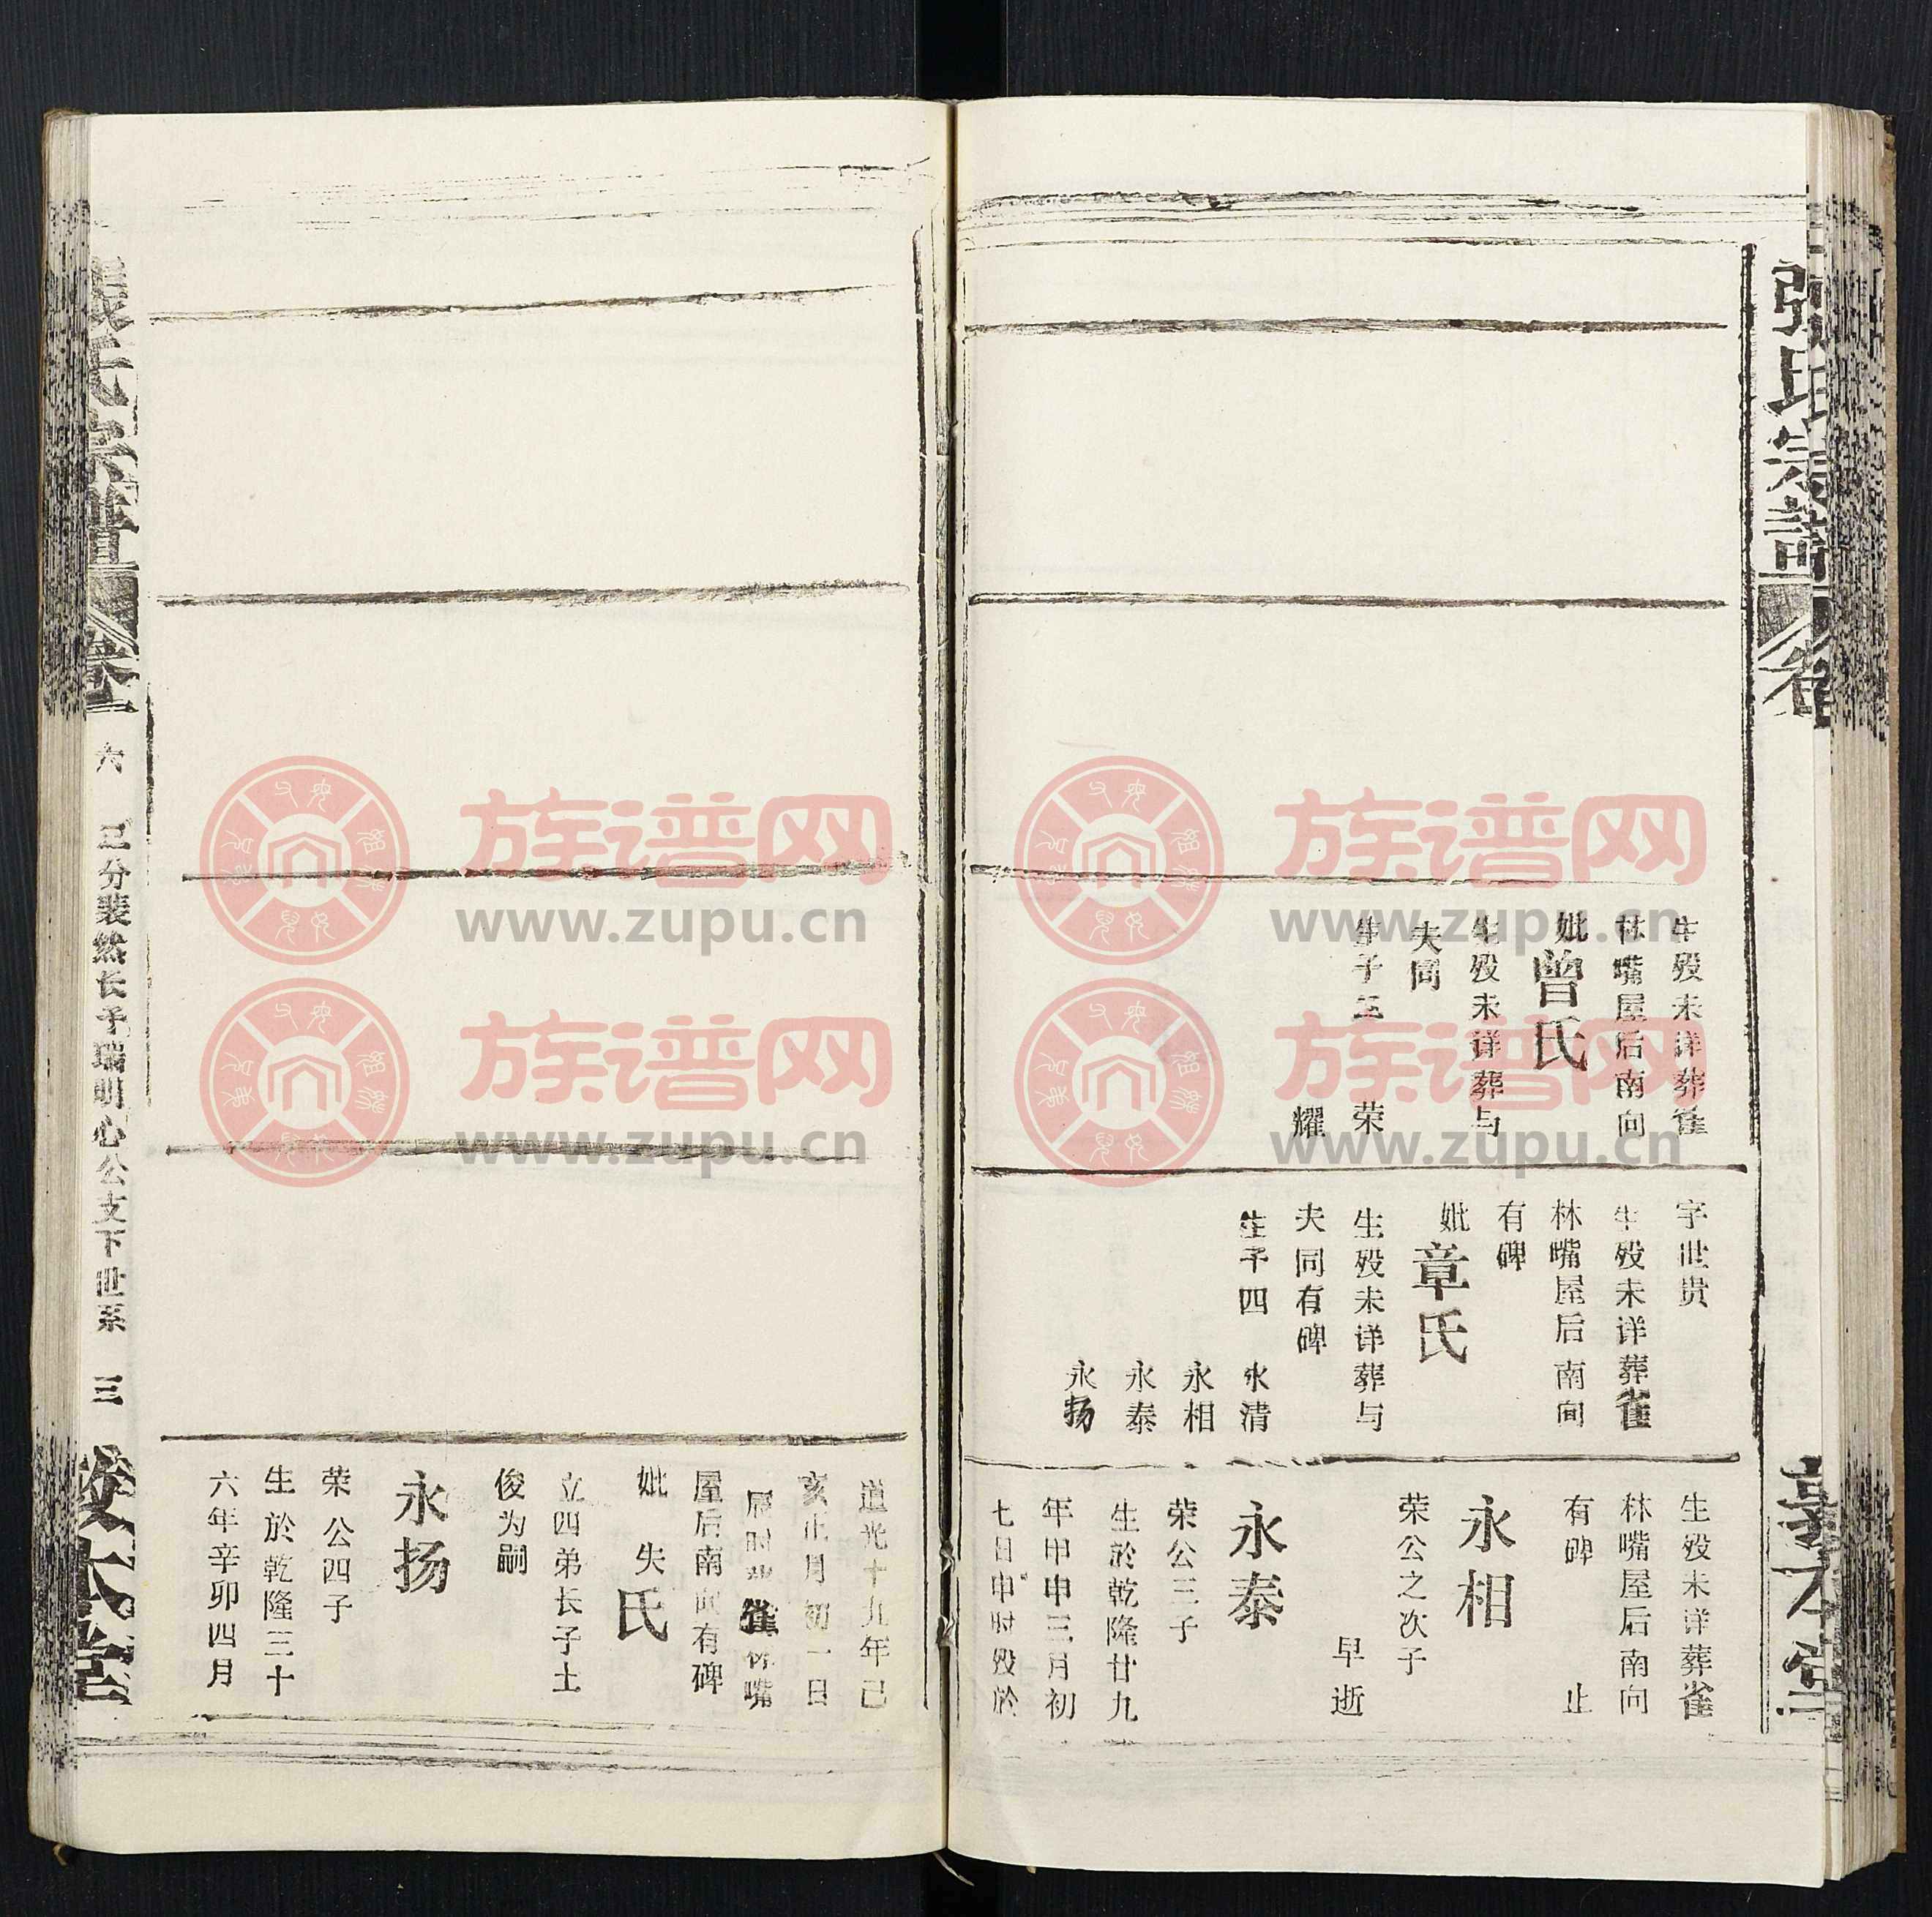 张氏宗譜
卷
敦本堂
生殁未详葬雀
林嘴屋后南向
妣曾氏
生殁未详葬与
夫同
生子二 荣
耀
字世贵
生殁未详葬雀
林嘴屋后南向
有碑
妣章氏
生殁未详葬与
夫同有碑
生子四 永清
永相
永泰
永扬
生殁未详葬雀
林嘴屋后南向
有碑 止
永相
荣公之次子
早逝
永泰
荣公三子
生於乾隆廿九
年甲申三月初
七日申时殁於
道光十九年己
亥正月初一日
辰时葬雀林嘴
屋后南向有碑
妣失氏
立四弟长子士
俊为嗣
永扬
荣公四子
生於乾隆三十
六年辛卯四月
張氏宗谱
卷
六
三分裴然长子瑞明心公支下世系
三
敦本堂
族谱网
www.zupu.cn
族谱网
www.zupu.cn
族谱网
www.zupu.cn
族谱网
www.zupu.cn